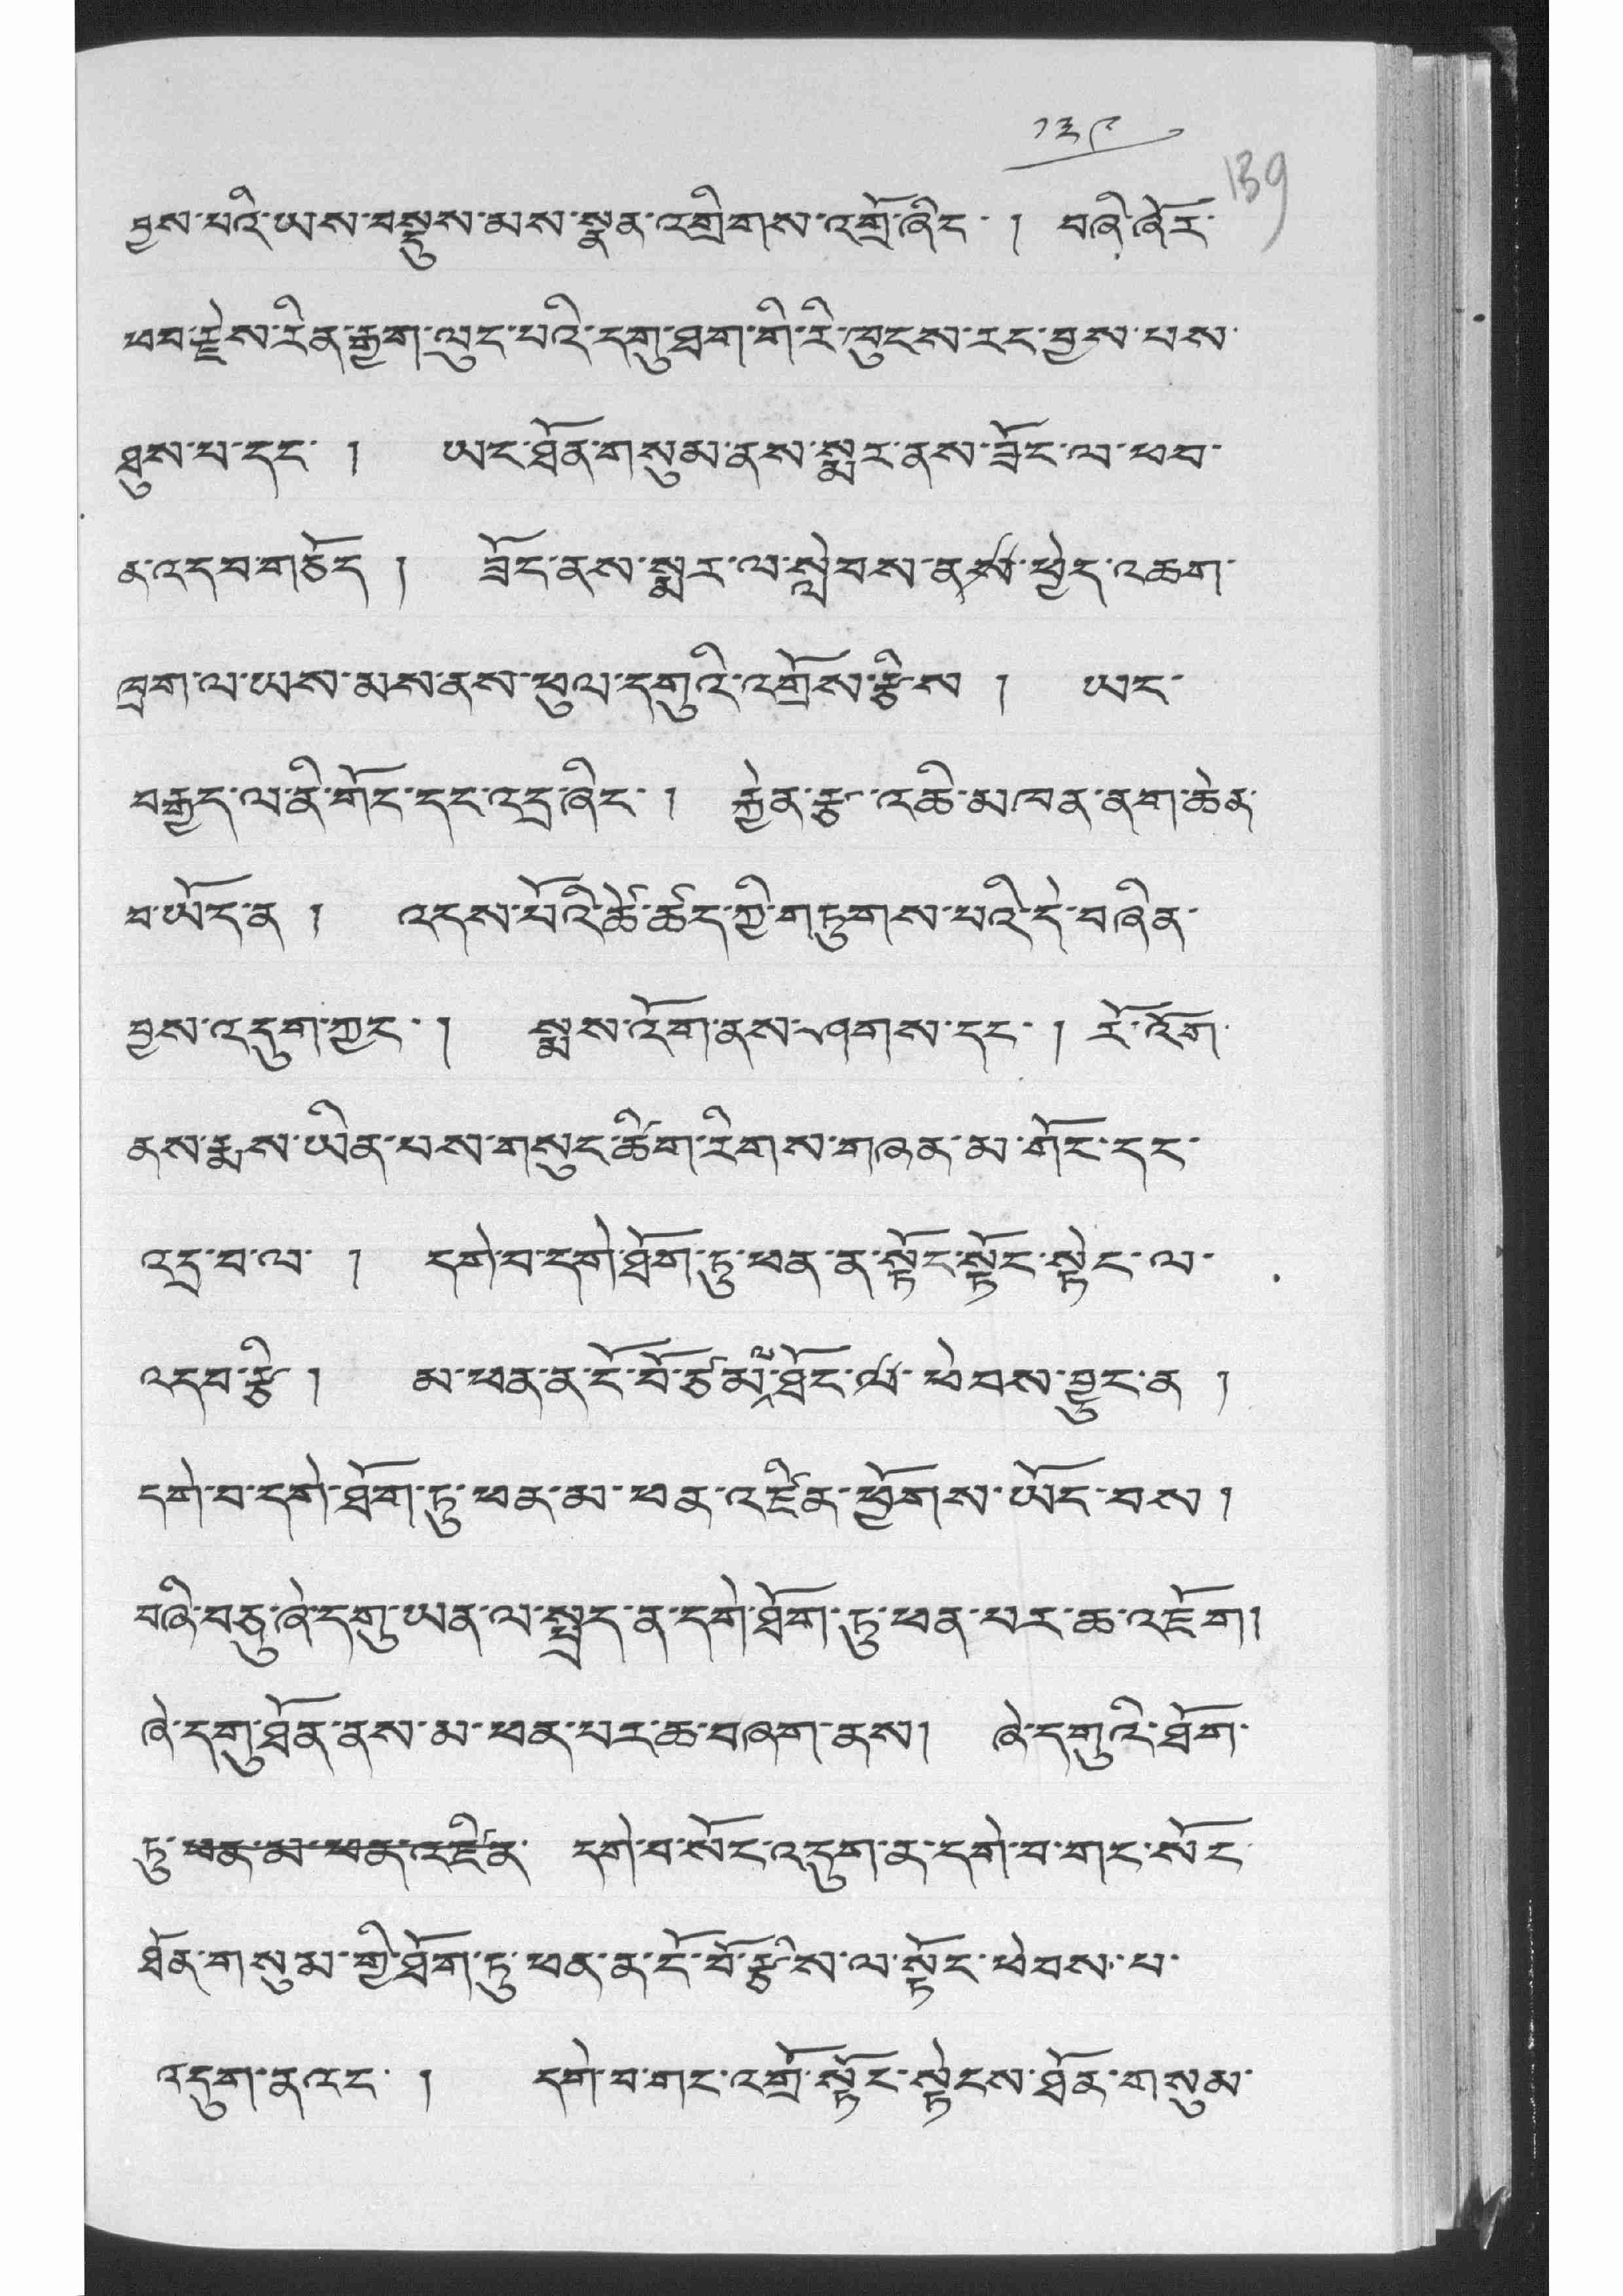 ༡༣༩
139
བྱས་པའི་ཡས་བསྡུས་མས་སྣུན་འགྲིགས་འགྲོ་ཞིང་ ། བཞི་ཞོར་
ཕབ་རྗེས་རིན་རྒྱག་ལུང་པའི་དགུ་ཐག་གི་རི་ཁུངས་རང་བྱས་པས་
ཐུས་པ་དང་ ། ཡང་ཐོན་གསུམ་ནས་སྨར་ནས་ཟོང་ལ་ཕབ་
ན་འདབ་གཅོད ། ཟོང་ནས་སྨར་ལ་སླེབས་ན་ ཕྱེད་འཆག་
ཁྲག་ལ་ཡས་མས་ནས་ཕུལ་དགུའི་འགྲོས་རྩིས ། ཡང་
བརྒྱད་ལ་ནི་གོང་དང་འདྲ་ཞིང་ ། རྐྱེན་རྩ་འཆི་མཁན་ནག་ཆེན་
བ་ཡོད་ན ། འདས་པོའི་ཚེ་ཚད་ཀྱི་གཏུགས་པའི་དེ་བཞིན་
བྱས་འདུག་ཀྱང་ ། སྨས་འོག་ནས་ཞགས་དང་ ། རོ་འོག་
ནས་རྨས་ཡིན་པས་གསུང་ཚིག་རིགས་གཞན་མ་གོང་དང་
འདྲ་བ་ལ་ ། དགེ་བ་དགེ་ཐོག་ཏུ་ཕན་ན་སྟོང་སྟོང་སྟེང་ལ་
འདབ་རྩི ། མ་ཕན་ན་ངོ་བོ་ཙམ་ལཱ་ཐོང་ ཕེབས་བྱུང་ན །
དགེ་བ་དགེ་ཐོག་ཏུ་ཕན་མ་ཕན་འཛིན་ཕྱོགས་ཡོད་པས །
བཞི་བཅུ་ཞེ་དགུ་ཡན་ལ་སྤྲད་ན་དགེ་ཐོག་ཏུ་ཕན་པར་ཆ་འཇོག།
ཞེ་དགུ་ཐོན་ནས་མ་ཕན་པར་ཆ་བཞག་ནས། ཞེ་དགུའི་ཐོག་
ཏུ་ཕན་མ་ཕན་འཛིན་ དགེ་བ་སོང་འདུག་ན་དགེ་བ་གང་སོང་
ཐོན་གསུམ་གྱི་ཐོག་ཏུ་ཕན་ན་ངོ་བོ་རྩིས་ལ་སྟོང་ཕེབས་པ་
འདུག་ནའང་ ། དགེ་བ་གང་འགྲོ་སྟོང་སྟེངས་ཐོན་གསུམ་